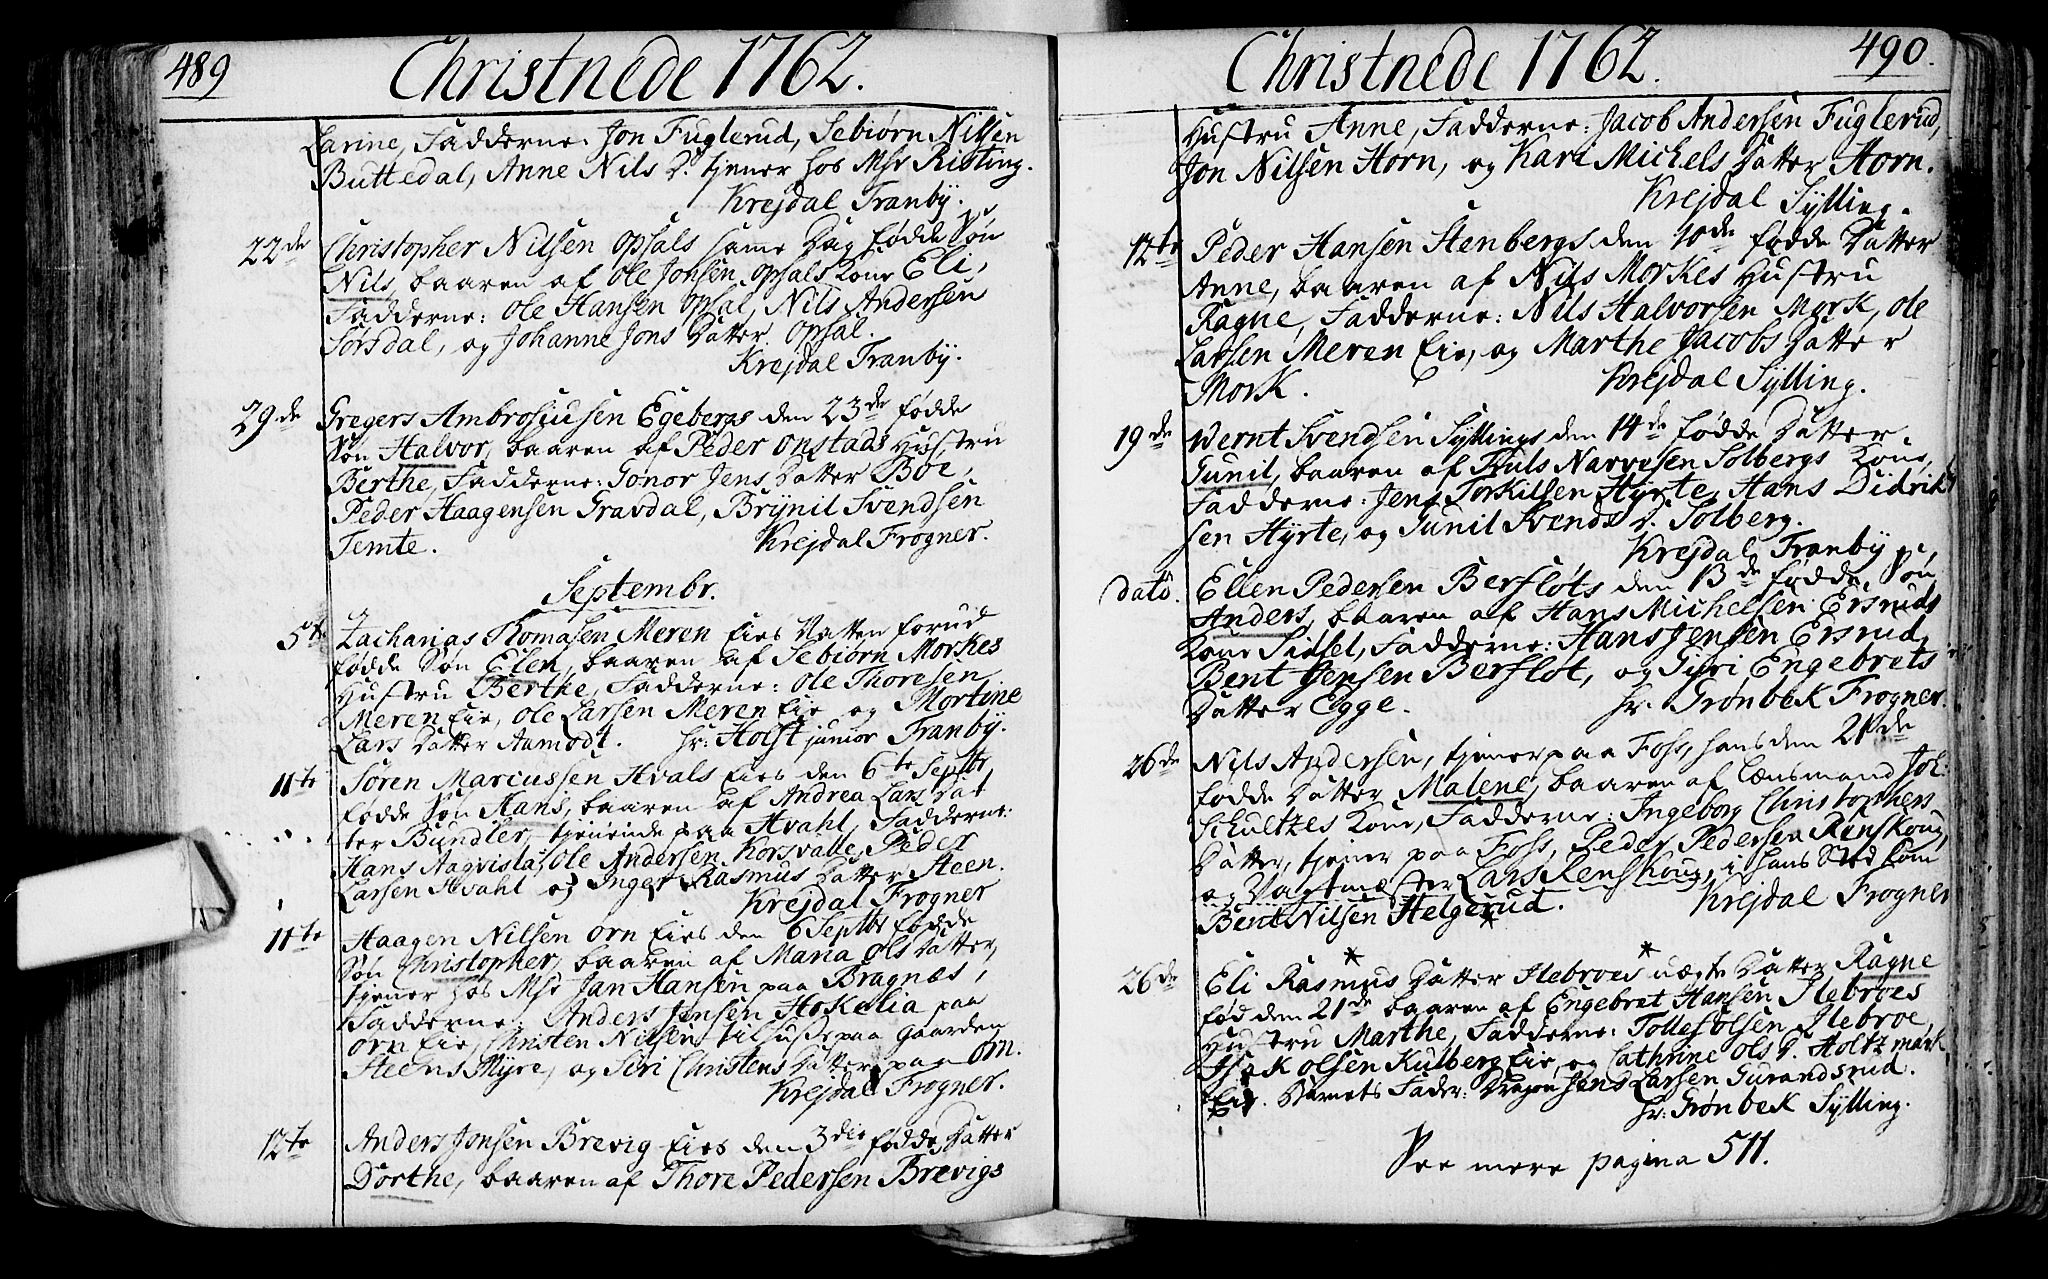 489
Christnede 1762.
Larine, Fadderne: Jon Fuglerud, Sebiørn Nilsen
Buttedal, Anne Nils D. tjener hos Msr Risting.
Krejdal Tranby.
22de Christopher Nilsen Opsals same Dag fødde Søn
Nils, baaren af Ole Jonsen Opsals Kone Eli,
Fadderne: Ole Hansen Opsal, Nils Andersen
Sørsdal, og Johanne Jons Datter Opsal.
Krejdal Tranby.
29de Gregers Ambrosiusen Egebergs den 23de fødde
Søn Halvor, baaren af Peder Onstads Hustru
Berthe, Fadderne: Gonor Jens Datter Boe,
Peder Haagensen Gravdal, Brynil Svendsen
Temte. Krejdal Frogner.
Septembr.
5te Zacharias Thomasen Meren Eies Natten forud
fødde Søn Elen, baaren af Sebiørn Morkes
Hustru Berthe, Fadderne: Ole Thoresen
Meren Eie, Ole Larsen Meren Eie og Mortine
Lars Datter Aamodt. Hr: Holst junior Tranby.
11te Søren Marcussen Hvals Eies den 6te Septbr
fødde Søn Hans, baaren af Andrea Lars Dat
ter Bundler, tjenende paa Hvahl, Fadderne:
Hans Aaqvisla, Ole Andersen Korsvalle, Peder
Larsen Hvahl og Inger Rasmus Datter Steen.
Krejdal Frogner
11te Haagen Nilsen Orn Eies den 6 Septbr fødde
Søn Christopher, baaren af Maria Ols Datter,
tjener hos Msr Jan Hansen paa Bragnæs,
Fadderne: Anders Jensen Hokelia paa
Orn Eie, Christen Nilsen tilhuse paa Gaarden
Steens Myre, og Siri Christens Datter paa Orn.
Krejdal Frogner.
12te Anders Jonsen Brevig Eies den 3die fødde Datter
Dorthe, baaren af Thore Pedersen Brevigs
490.
Christnede 1762.
Hustru Anne, Fadderne: Jacob Andersen Fuglerud,
Jon Nilsen Horn, og Kari Michels Datter Horn.
Krejdal Sylling.
12te Peder Hansen Stenbergs den 10de fødde Datter
Anne, baaren af Nils Morkes Hustru
Ragne, Fadderne: Nils Halvorsen Mork, Ole
Larsen Meren Eie, og Marthe Jacobs Datter
Mork. Krejdal Sylling.
19de Bernt Svendsen Syllings den 14de fødde Datter
Gunil, baaren af Truls Narvesen Solbergs Kone,
Fadderne: Jens Torkilsen Hyrte, Hans Didrik
sen Hyrte, og Gunil Svends D. Solberg.
Krejdal Tranby
Dato. Ellen Pedersen Berfløts den 13de fødde Søn
Anders, baaren af Hans Michelsen Ersruds
Kone Sidsel, Fadderne: Hans Jensen Ersrud,
Bent Jensen Berfløt, og Guri Engebrets
Datter Egge. Hr. Grønbek Frogner.
26de Nils Andersen, tjener paa Foss, hans den 21de
fødde Datter Malene, baaren af Lensmand Joh:
Schultzes Kone, Fadderne: Ingeborg Christophers
Datter, tjener paa Foss, Peder Pedersen Renskoug,
og Vagtmester Lars Renskoug, i hans Sted kom
Bent Nilsen Helgerud. Krejdal Frogner
26de Eli Rasmus Datter Ilebroes uægte Datter Ragne
fød den 21de baaren af Engebret Hansen Ilebroes
Hustru Marthe, Fadderne: Tollef Olsen Ilebroe,
Isak Olsen Kulberg Eie, og Cathrine Ols D. Holtzmark
Eie. Barnets Fader: Dragon Jens Larsen Gurandsrud.
Hr: Grønbek Sylling.
See mere pagina 511.